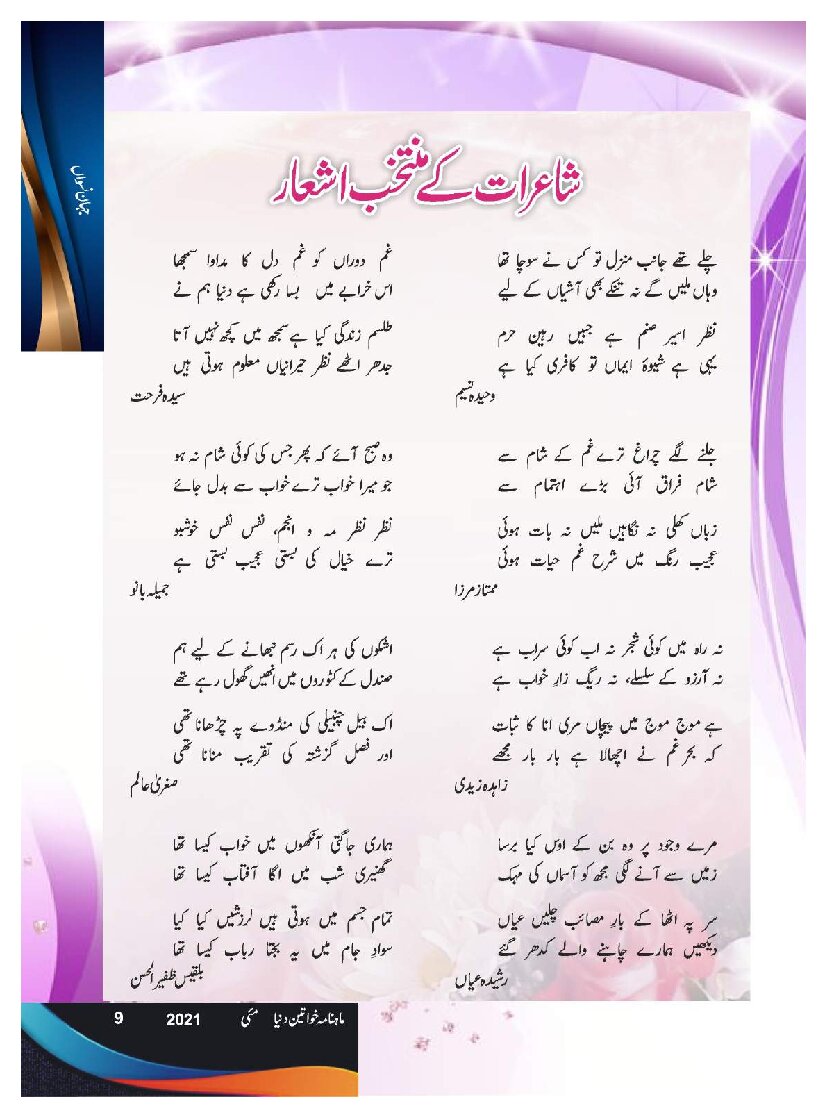 جہان نسواں
شاعرات کے منتخب اشعار
چلے تھے جانب منزل تو کس نے سوچا تھا
وہاں ملیں گے نہ تنکے بھی آشیاں کے لیے
نظر اسیر صنم ہے جبیں رہین حرم
یہی ہے شیوۂ ایماں تو کافری کیا ہے
وحیدہ نسیم
غم دوراں کو غم دل کا مداوا سمجھا
اس خرابے میں بسا رکھی ہے دنیا ہم نے
طلسم زندگی کیا ہے سمجھ میں کچھ نہیں آتا
جدھر اٹھے نظر حیرانیاں معلوم ہوتی ہیں
سیدہ فرحت
جلنے لگے چراغ ترے غم کے شام سے
شام فراق آئی بڑے اہتمام سے
زباں کھلی نہ نگاہیں ملیں نہ بات ہوئی
عجیب رنگ میں شرح غم حیات ہوئی
ممتاز مرزا
وہ صبح آئے کہ پھر جس کی کوئی شام نہ ہو
جو میرا خواب ترے خواب سے بدل جائے
نظر نظر مہ و انجم، نفس نفس خوشبو
ترے خیال کی بستی عجیب بستی ہے
جمیلہ بانو
نہ راہ میں کوئی شجر نہ اب کوئی سراب ہے
نہ آرزو کے سلسلے، نہ ریگ زارِ خواب ہے
ہے موج موج میں پیچاں مری انا کا ثبات
کہ بحر غم نے اچھالا ہے بار بار مجھے
زاہدہ زیدی
اشکوں کی ہر اک رسم نبھانے کے لیے ہم
صندل کے کٹوروں میں انھیں گھول رہے تھے
اک بیل چنبیلی کی منڈوے پہ چڑھانا تھی
اور فصل گزشتہ کی تقریب منانا تھی
صغریٰ عالم
مرے وجود پر وہ بن کے اوس کیا برسا
زمیں سے آنے لگی مجھ کو آسماں کی مہک
سر پہ اٹھا کے بارِ مصائب چلیں عیاں
دیکھیں ہمارے چاہنے والے کدھر گئے
رشیدہ عیاں
ہماری جاگتی آنکھوں میں خواب کیسا تھا
گھنیری شب میں اگا آفتاب کیسا تھا
تمام جسم میں ہوتی ہیں لرزشیں کیا کیا
سوادِ جام میں یہ بجتا رباب کیسا تھا
بلقیس ظفیر الحسن
ماہنامہ خواتین دنیا مئی 2021 9